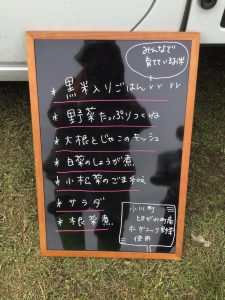 みんなで
育てているお米
* 黒米入りごはん
* 野菜たっぷりつくね
* 大根とじゃこのキッシュ
* 白菜のしょうが煮
* 小松菜のごま和え
* サラダ
* 根菜煮
小川町
ときがわ町産
オーガニック野菜
使用